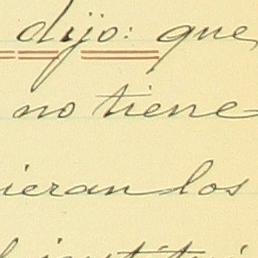 dijo: que
no tiene
ieran los